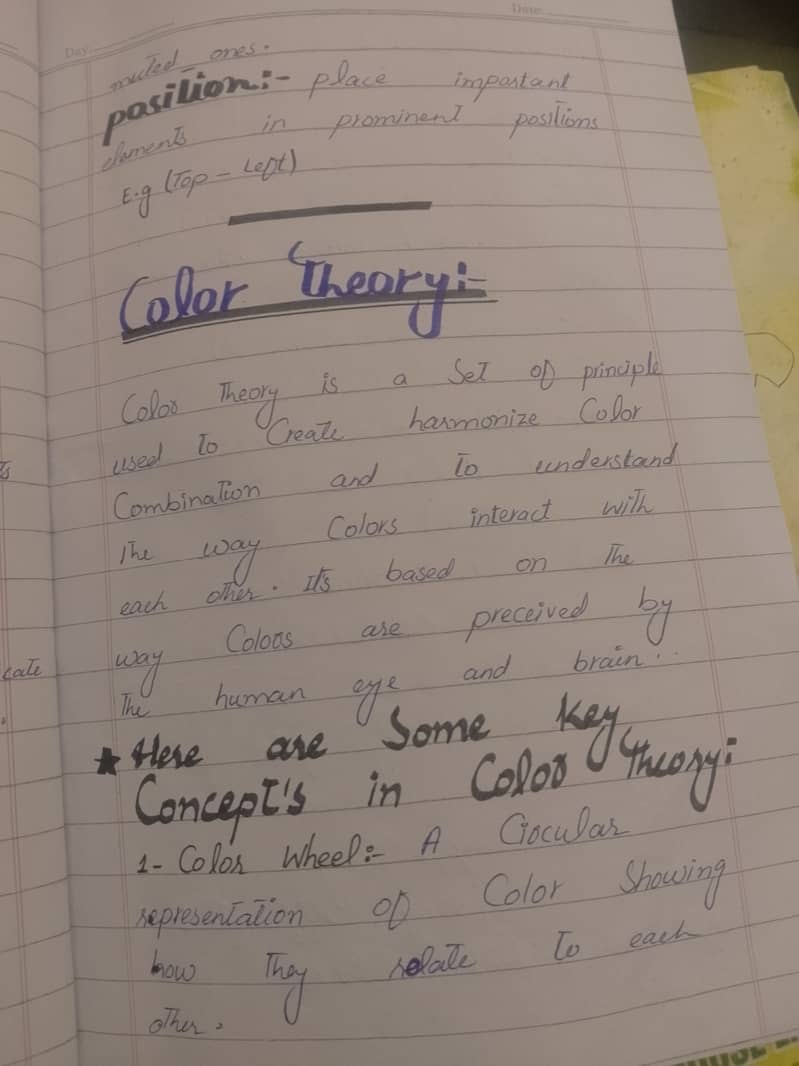 Date:
Day:
muted ones.
position:- place important
elements in prominent positions
E.g (Top - Left)
Color Theory:-
Color Theory is a Set of principle
used to Create harmonize Color
Combination and to understand
The way Colors interact with
each other. It's based on The
way Colors are preceived by
The human eye and brain..
★ Here are Some key
Concept's in Color Theory:
1- Color Wheel:- A Circular
representation of Color Showing
how They relate to each
other.
cate